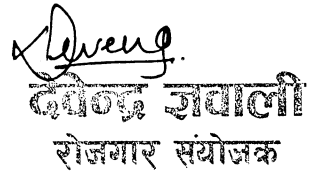 देवेन्द्र ज्ञवाली
रोजगार संयोजक